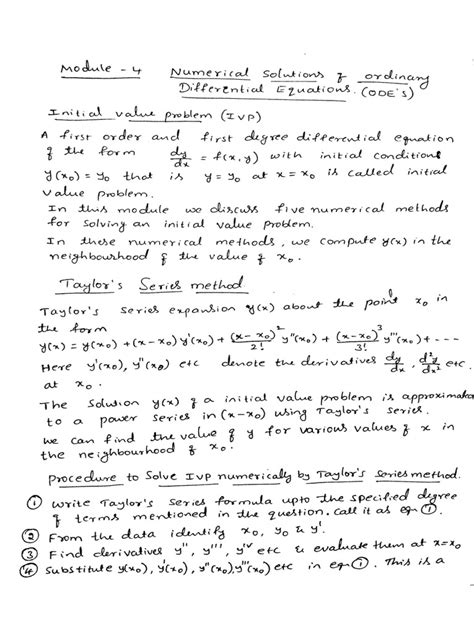 Module - 4 Numerical Solutions of ordinary
Differential Equations. (ODE's)
Initial value problem (IVP)
A first order and first degree differential equation
of the form dy/dx = f(x,y) with initial condition
y(x₀) = y₀ that is y = y₀ at x = x₀ is called initial
value problem.
In this module we discuss five numerical methods
for solving an initial value problem.
In these numerical methods, we compute y(x) in the
neighbourhood of the value of x₀.
Taylor's Series method.
Taylor's series expansion y(x) about the point x₀ in
the form
y(x) = y(x₀) + (x-x₀) y'(x₀) + (x-x₀)²/2! y''(x₀) + (x-x₀)³/3! y'''(x₀) + - - -
Here y'(x₀), y''(x₀) etc denote the derivatives dy/dx, d²y/dx² etc.
at x₀.
The solution y(x) of a initial value problem is approximated
to a power series in (x-x₀) using Taylor's series.
We can find the value of y for various values of x in
the neighbourhood of x₀.
procedure to solve IVP numerically by Taylor's series method.
① write Taylor's Series formula upto the specified degree
of terms mentioned in the question. call it as eqn ①.
② From the data identify x₀, y₀ & y'.
③ Find derivatives y'', y''', yⁱᵛ etc & evaluate them at x=x₀
④ Substitute y(x₀), y'(x₀), y''(x₀), y'''(x₀) etc in eqn ①. This is a